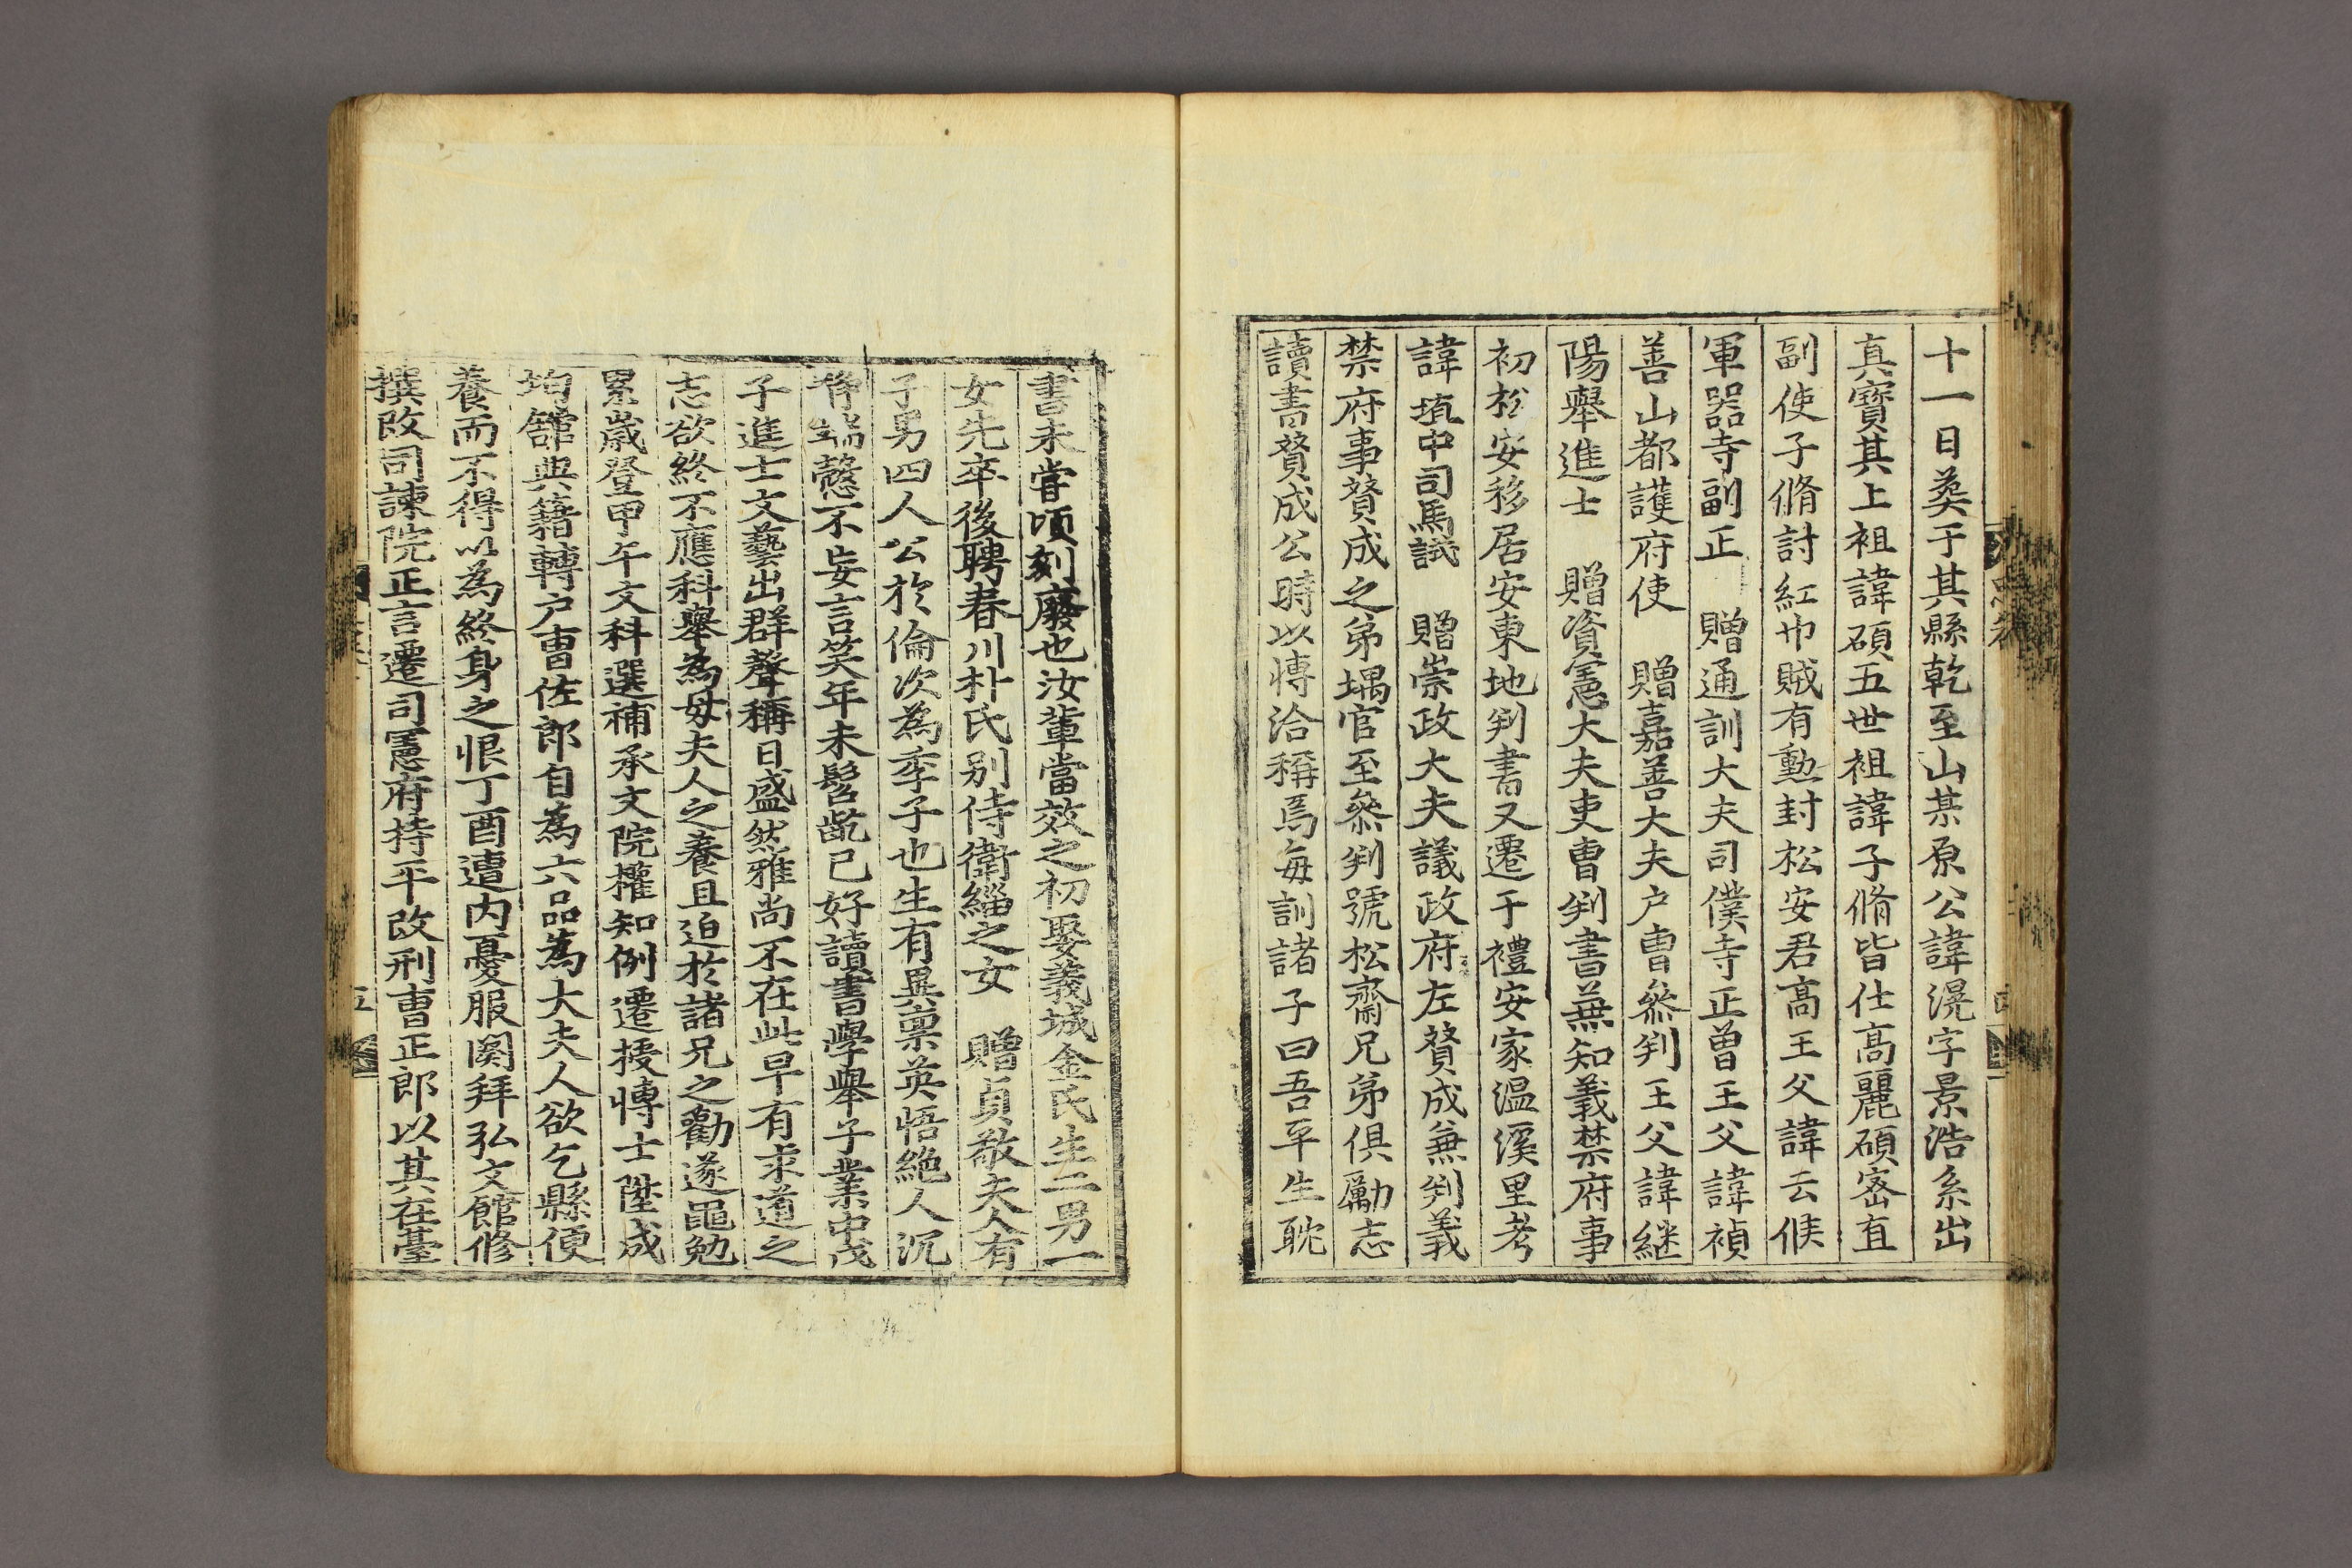 十一日葬于其縣乾至山某原公諱滉字景浩系出
真寶其上祖諱碩五世祖諱子脩皆仕高麗碩密直
副使子脩討紅巾賊有勳封松安君高王父諱云侯
軍器寺副正 贈通訓大夫司僕寺正曾王父諱禎
善山都護府使 贈嘉善大夫戶曹叅判王父諱継
陽舉進士 贈資憲大夫吏曹判書兼知義禁府事
初松安移居安東地判書又遷于禮安家温溪里考
諱埴中司馬試 贈崇政大夫議政府左贊成兼判義
禁府事贊成之弟堣官至叅判號松齋兄弟俱勵志
讀書贊成公時以博洽稱焉每訓諸子曰吾平生耽
書未甞頃刻廢也汝輩當效之初娶義城金氏生二男一
女先卒後聘春川朴氏別侍衛緇之女 贈貞敬夫人有
子男四人公於倫次為季子也生有異稟英悟絶人沉
静端慤不妄言笑年未髫齔已好讀書學舉子業中戊
子進士文藝出群聲稱日盛然雅尚不在此早有求道之
志欲終不應科舉為母夫人之養且迫於諸兄之勸遂黽勉
累歲登甲午文科選補承文院權知例遷授博士陞成
均舘典籍轉户曹佐郎自為六品為大夫人欲乞縣便
養而不得以為終身之恨丁酉遭内憂服闋拜弘文館修
撰改司諫院正言遷司憲府持平改刑曹正郎以其在臺